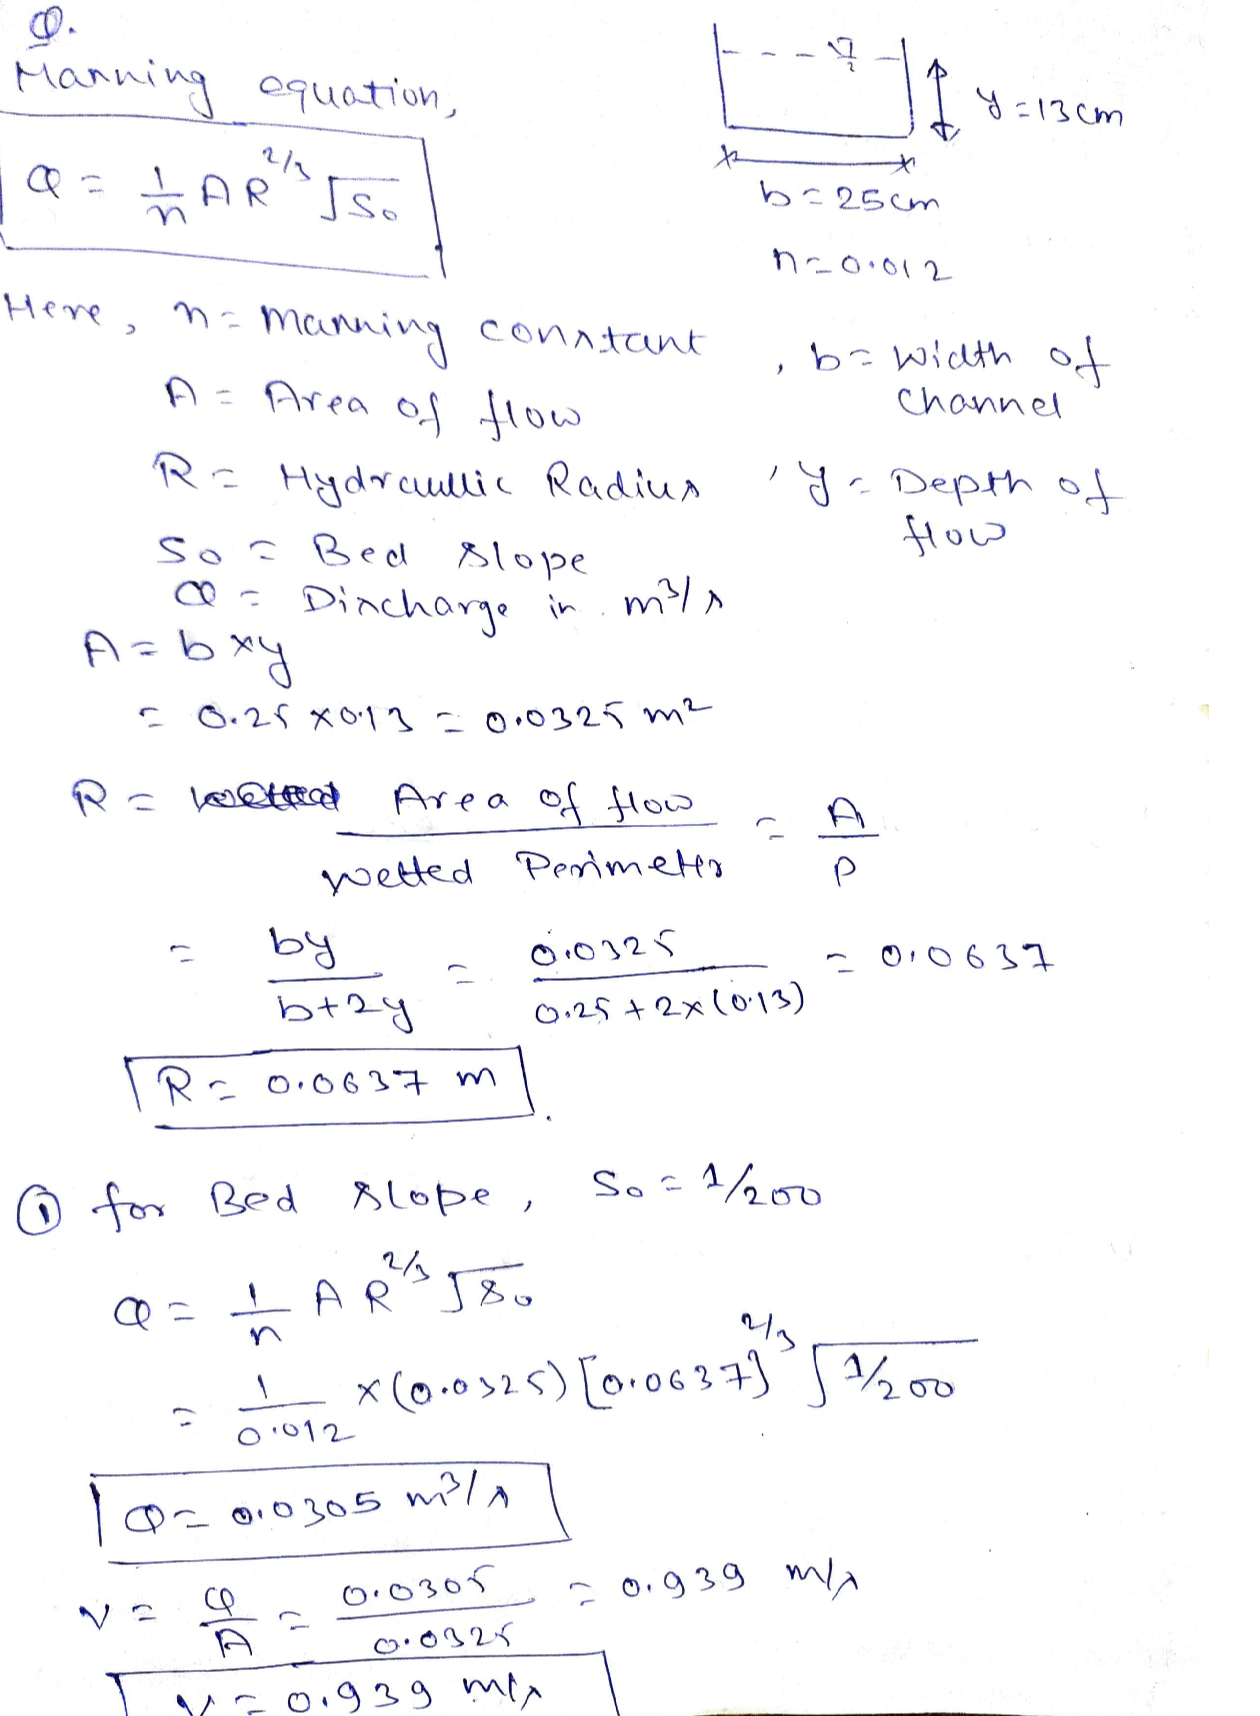 Q.
Manning equation,
Q = 1/n A R^2/3 √S₀
y = 13cm
b = 25cm
n = 0.012
Here, n = manning constant, b = Width of channel
A = Area of flow
R = Hydraullic Radius, y = Depth of flow
S₀ = Bed slope
Q = Discharge in m³/s
A = b×y
= 0.25 × 0.13 = 0.0325 m²
R = Area of flow / wetted Perimeter = A / P
= by / b+2y = 0.0325 / 0.25 + 2×(0.13) = 0.0637
R = 0.0637 m.
① for Bed slope, S₀ = 1/200
Q = 1/n A R^2/3 √S₀
= 1/0.012 × (0.0325) [0.0637]^2/3 √1/200
Q = 0.0305 m³/s
V = Q/A = 0.0305 / 0.0325 = 0.939 m/s
V = 0.939 m/s